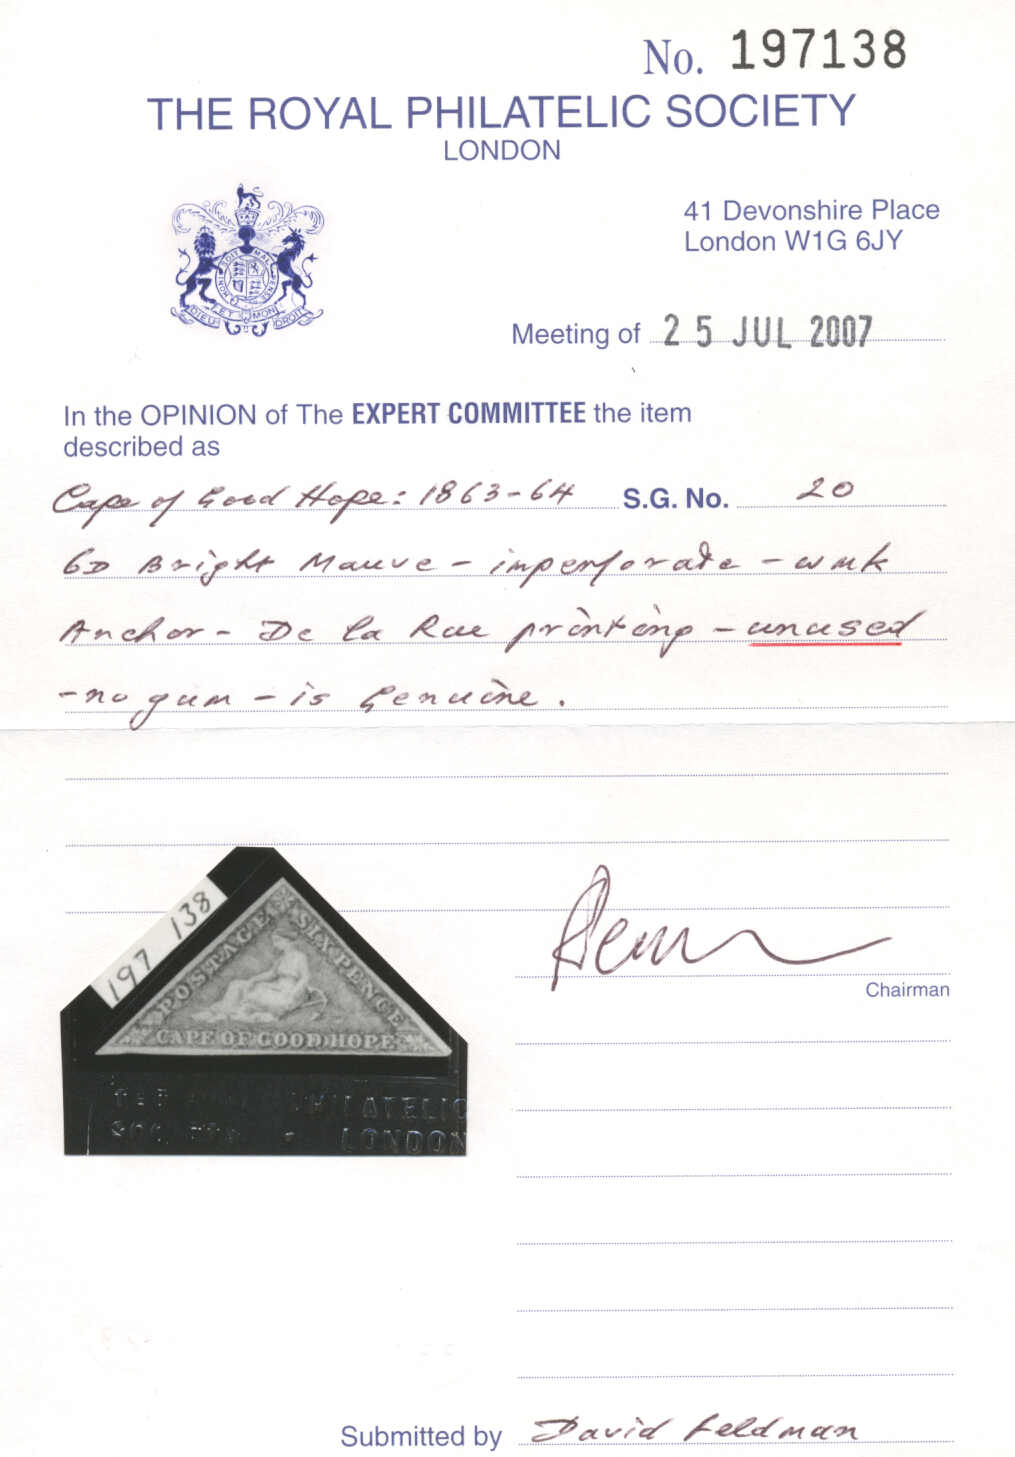 No. 197138
THE ROYAL PHILATELIC SOCIETY
LONDON
41 Devonshire Place
London W1G 6JY
HONI SOIT MAL PENSE
DIEU ET MON DROIT
Meeting of 25 JUL 2007
In the OPINION of The EXPERT COMMITTEE the item
described as
Cape of Good Hope: 1863-64 S.G. No. 20
6D Bright Mauve - imperforate - wmk
Anchor - De la Rue printing - unused
- no gum - is Genuine.
197 138
POSTAGE SIXPENCE
CAPE OF GOOD HOPE
PHILATELIC
LONDON
Chairman
Submitted by David Feldman